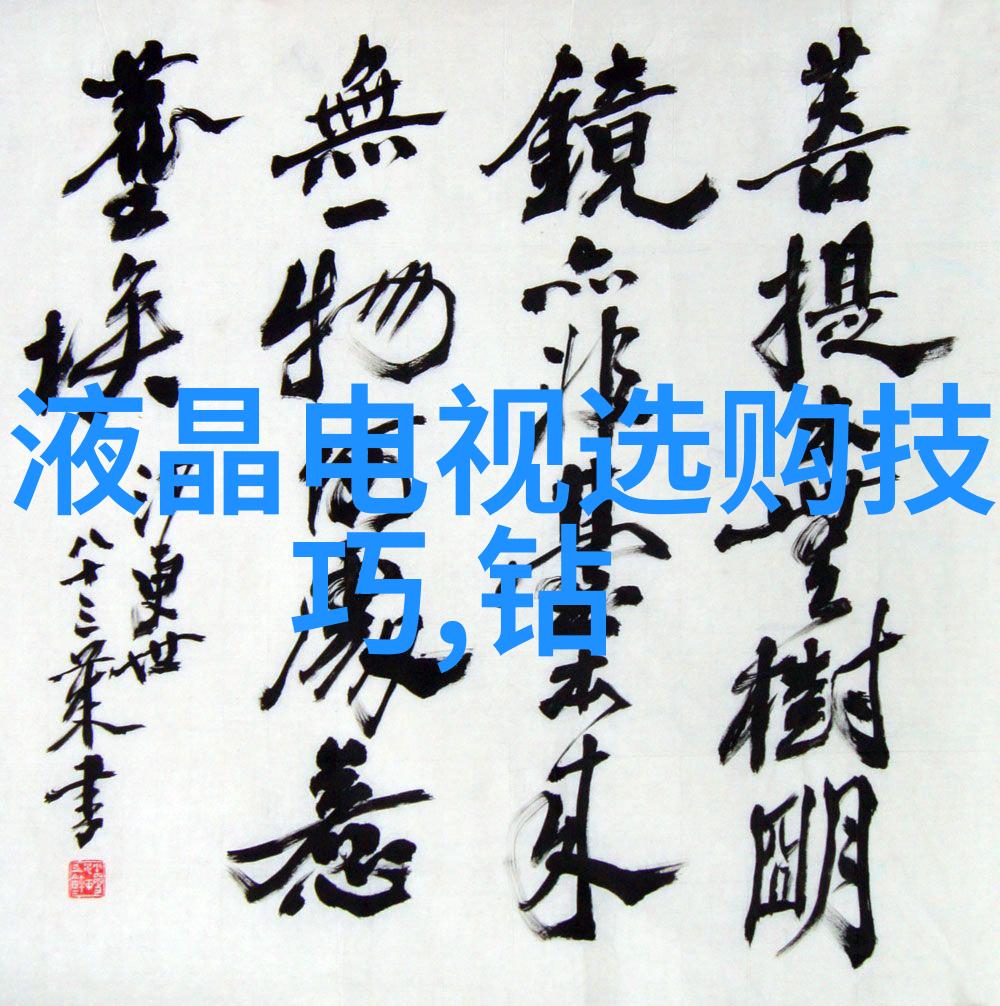 菩提本樹明
鏡亦非臺本來
無一物何處惹
塵埃
沙更世
八十三書
液晶电视选购技
巧,钻